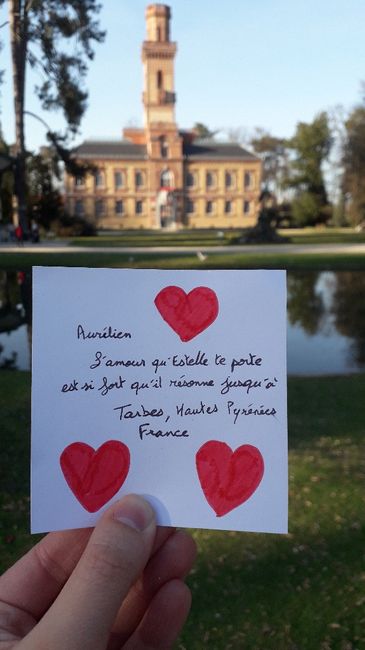 Aurélien
L'amour qu'Estelle te porte
est si fort qu'il résonne jusqu'à
Tarbes, Hautes Pyrénées
France